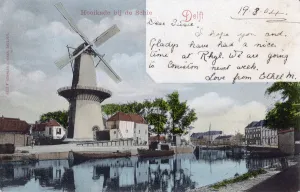 Houtkade bij de Schie
Delft
19.8.04
Dear Susie,
I hope you and
Gladys have had a nice
time at Rhyl. We are going
to Coniston next week.
Love from Ethel M.